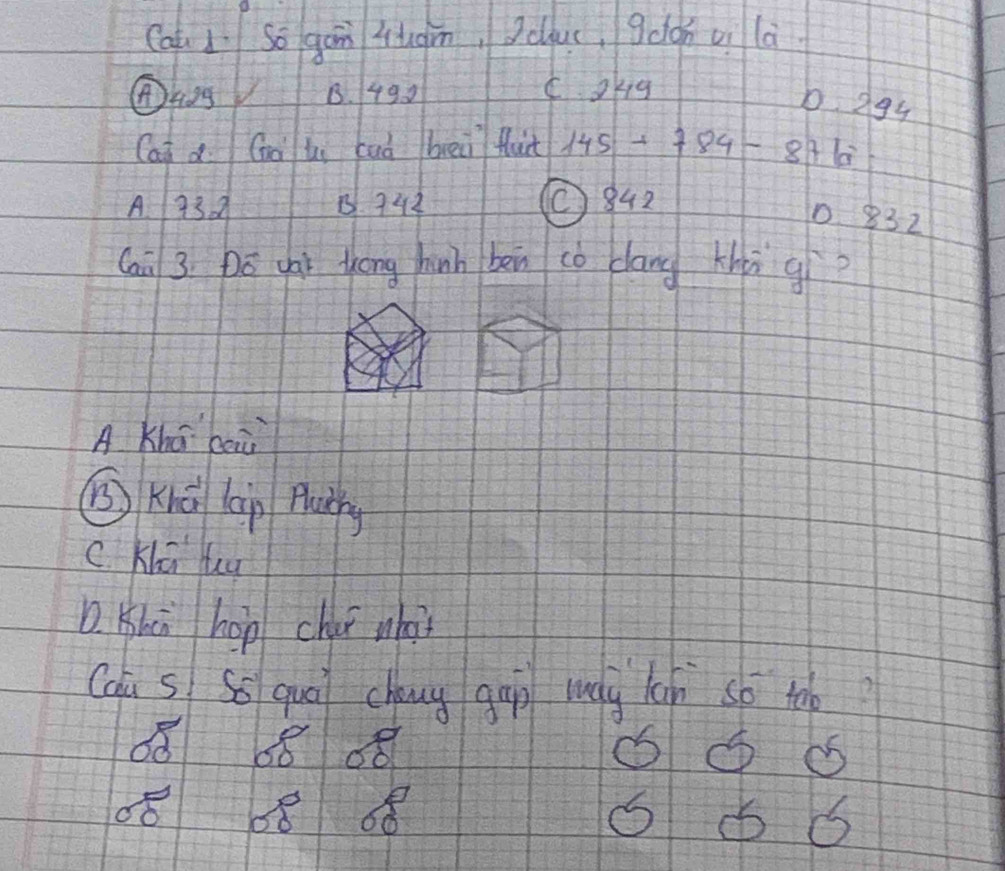 Câu 1. Số gồm 4 trăm, 2 chục, 9 đơn vị là.
A 429 B. 492 C. 249 D. 294
Câu 2. Giá trị của biểu thức 145 + 784 - 87 là.
A 732 B 742 C 842 D. 832
Câu 3. Đồ vật trong hình bên có dạng khối gì?
A. Khối cầu
B Khối lập Phương
C. Khối trụ
D. Khối hộp chữ nhật
Câu 5 Số quả gấp mấy lần số táo?